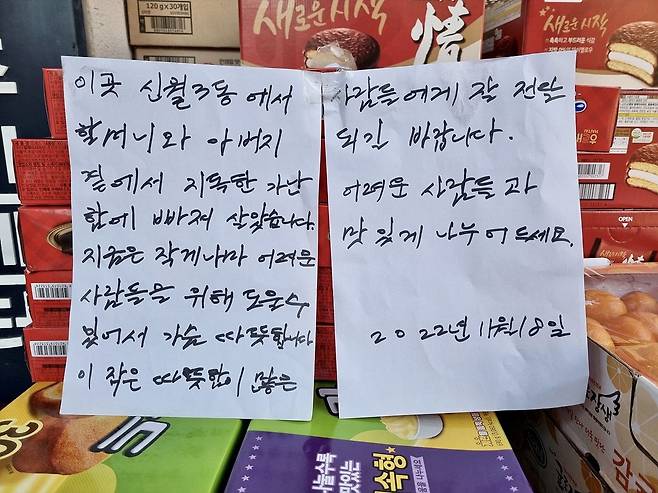 120 g x 30개입
새로운 시작
촉촉하고 부드러운 식감
情
새로운 시작
이곳 신월3동에서
할머니와 아버지
곁에서 지독한 가난
함에 빠져 살았습니다.
지금은 작게나마 어려운
사람들을 위해 도울수
있어서 가슴 따뜻합니다
이 작은 따뜻함이 많은
사람들에게 잘 전달
되길 바랍니다.
어려운 사람들과
맛있게 나누어 드세요.
2022년 11월 18일
OPEN
나눌수록
맛있는